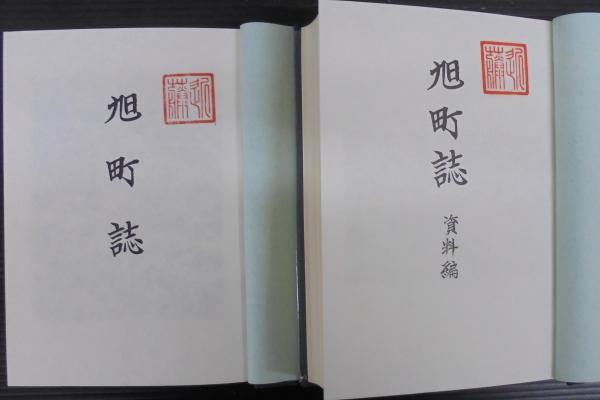 旭町誌
旭町誌
資料編